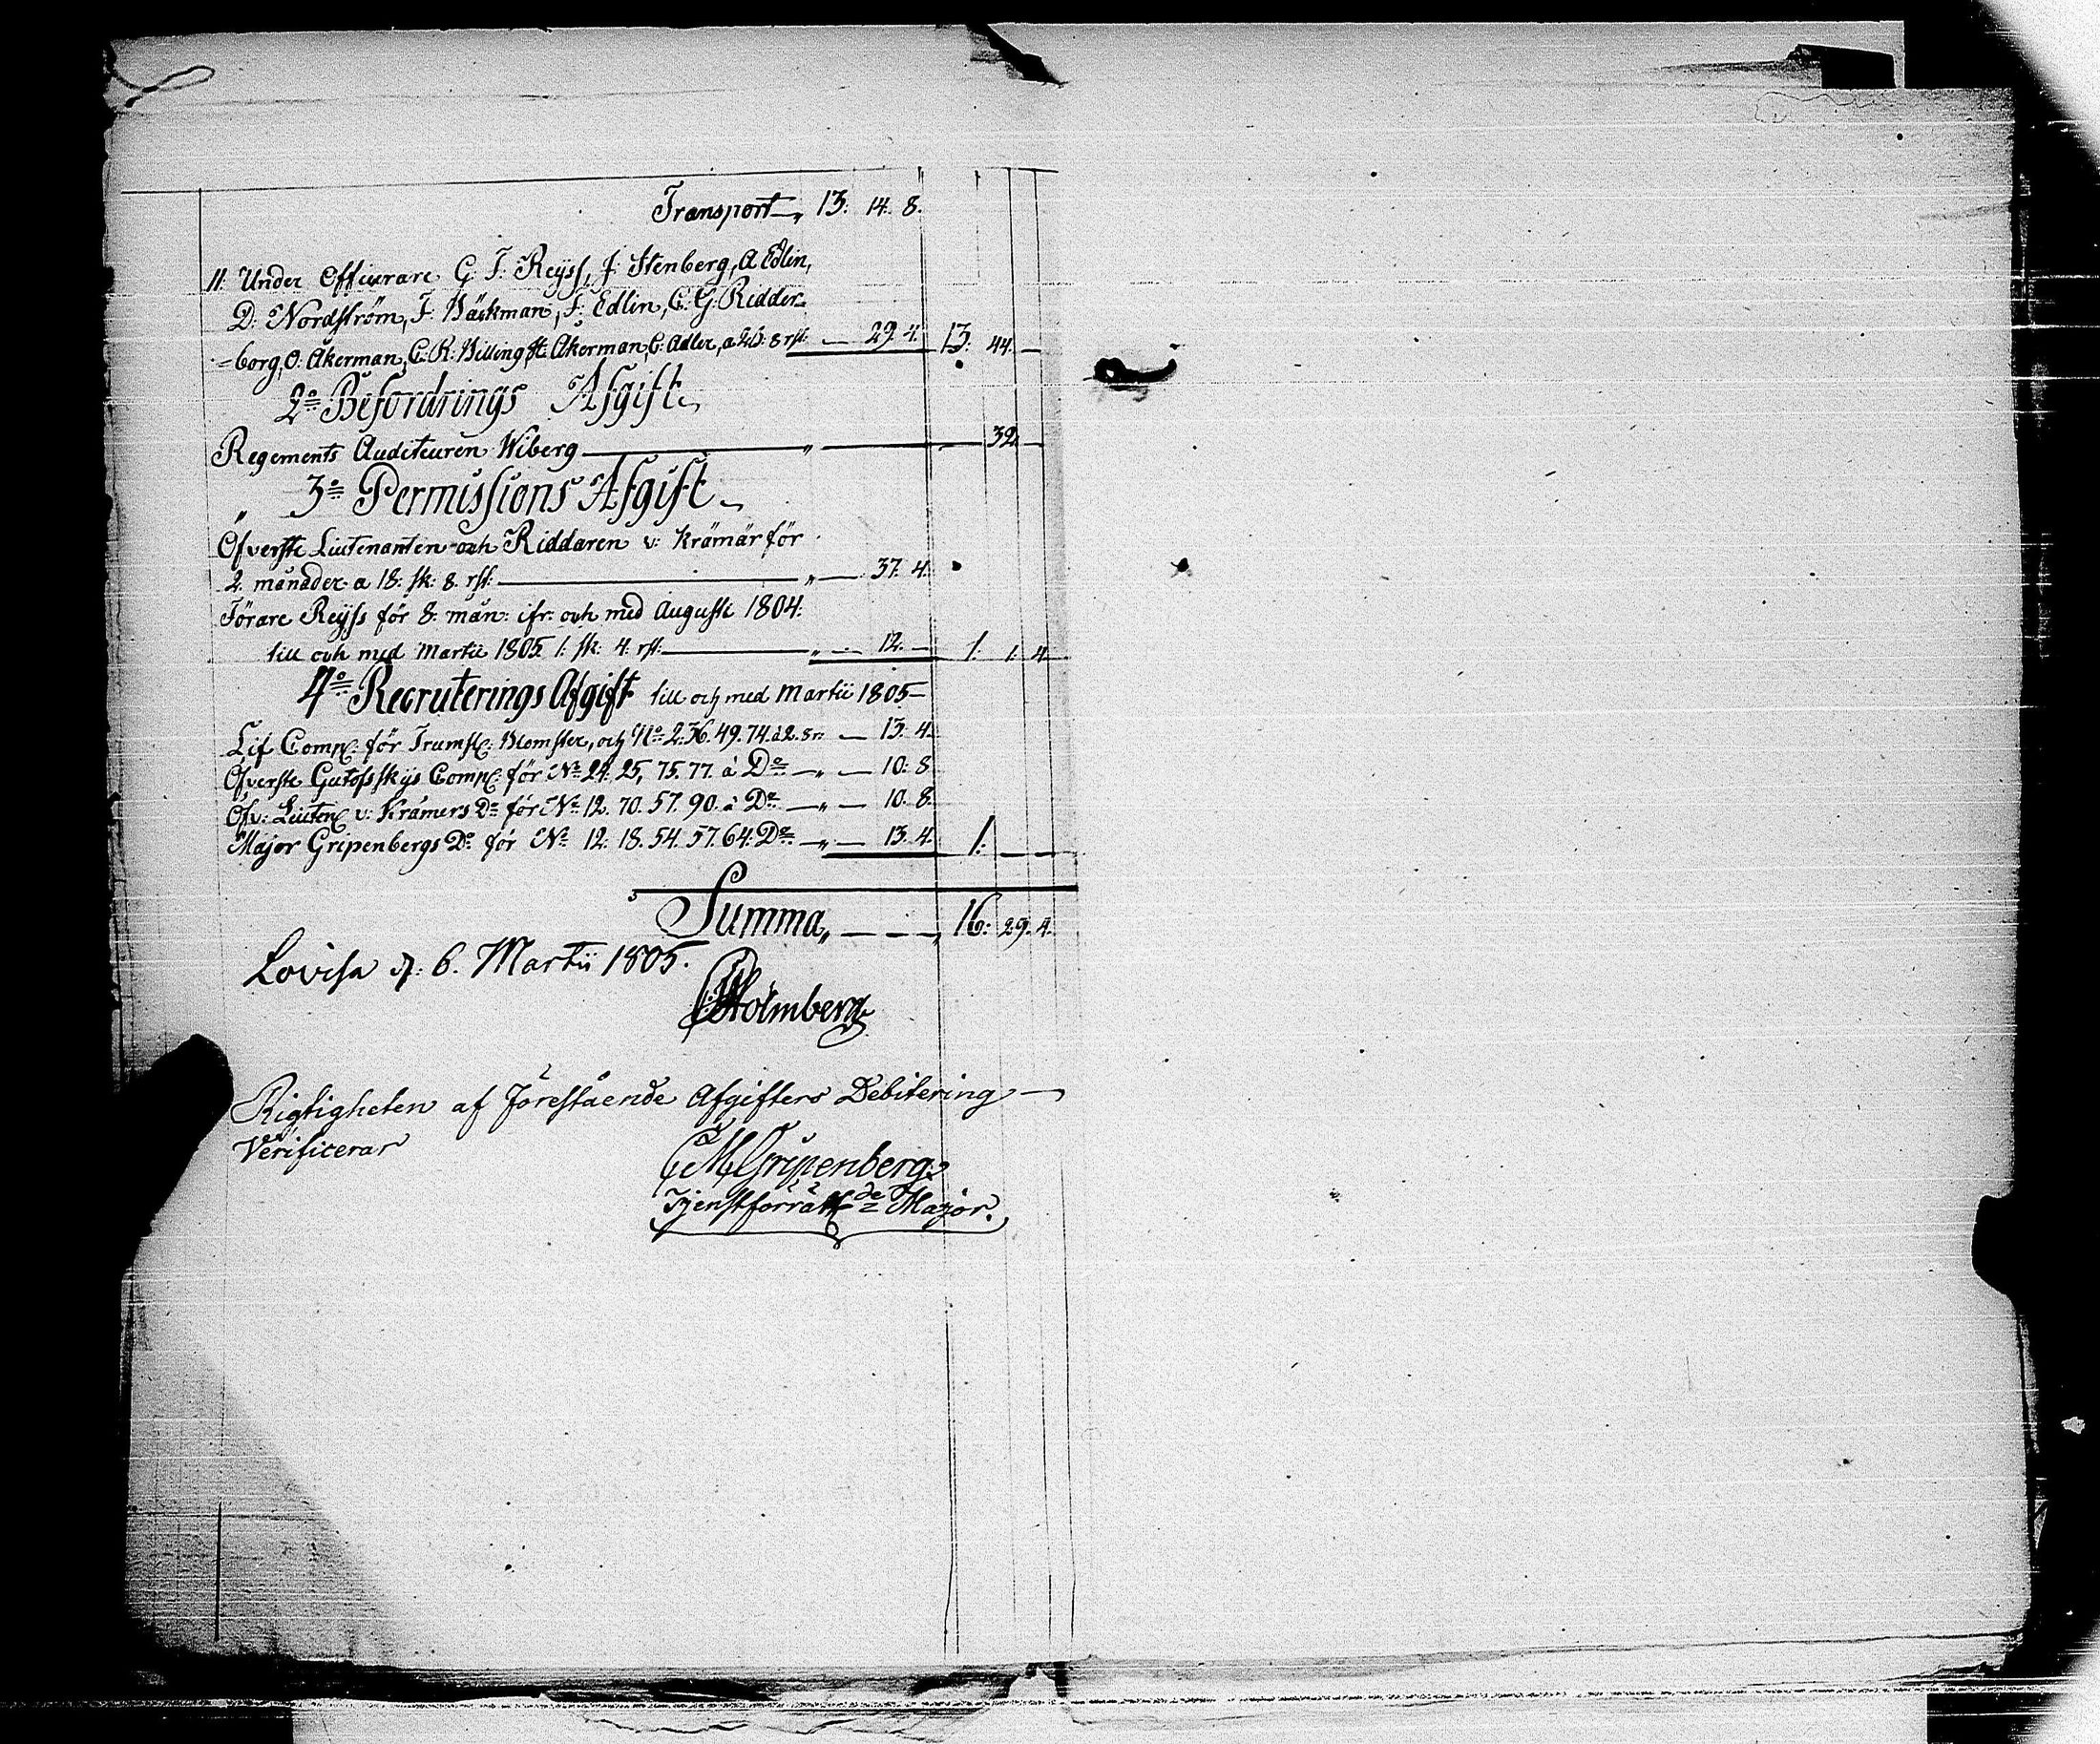 Transport 13: 14. 8.
11. Under Officerare G. F. Reyss, J. Stenberg, A Edlin,
D: Nordström, F: Bäckman, F: Edlin, C: G: Ridder-
=borg, O: Åkerman, C: R: Billing, H: Åkerman, C: Adler, a 2 sk: 8 rst: — 29. 4. 13: 44. —
2o Befordrings Afgift
Regements Auditeuren Wiberg — 32. —
3o Permissions Afgift
Öfverste Lieutenanten och Riddaren v: Krämär för
2. månader a 18: sk: 8. rst: — 37. 4.
Förare Reyss för 8. mån: ifr: och med Augusti 1804.
till och med Martii 1805 1: sk: 4. rst: — 12. — 1. 1. 4.
4o Recruterings Afgift till och med Martii 1805—
Lif Comp: för Trumsl: Blomster, och No 2. 36. 49. 74. à 2. 8 r: — 13. 4.
Öfverste Gutofsskys Comp: för No 24. 25, 75. 77. à Do — 10: 8
Öfv: Lieuten: v: Krämers Do för No 12. 70. 57. 90. à Do — 10. 8.
Major Gripenbergs Do för No 12. 18. 54. 57. 64. Do — 13. 4. 1. —
Summa — 16: 29. 4.
Lovisa d: 6. Martii 1805.
Holmberg
Rigtigheten af förestående Afgifters Debitering
Verificerar
CM Gripenberg
Tjenstförrättde Major.